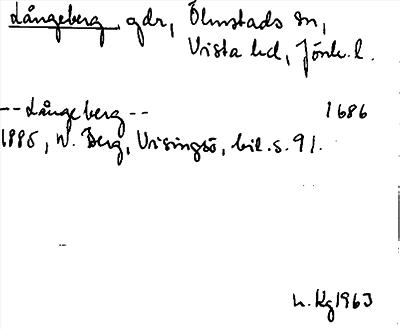 Långeberg gdr, Ölmstads sn,
Vista hd, Jönk. l.
--Långeberg-- 1686
1885, W. Berg, Visingsö, bil. s. 91.
L. Kg 1963